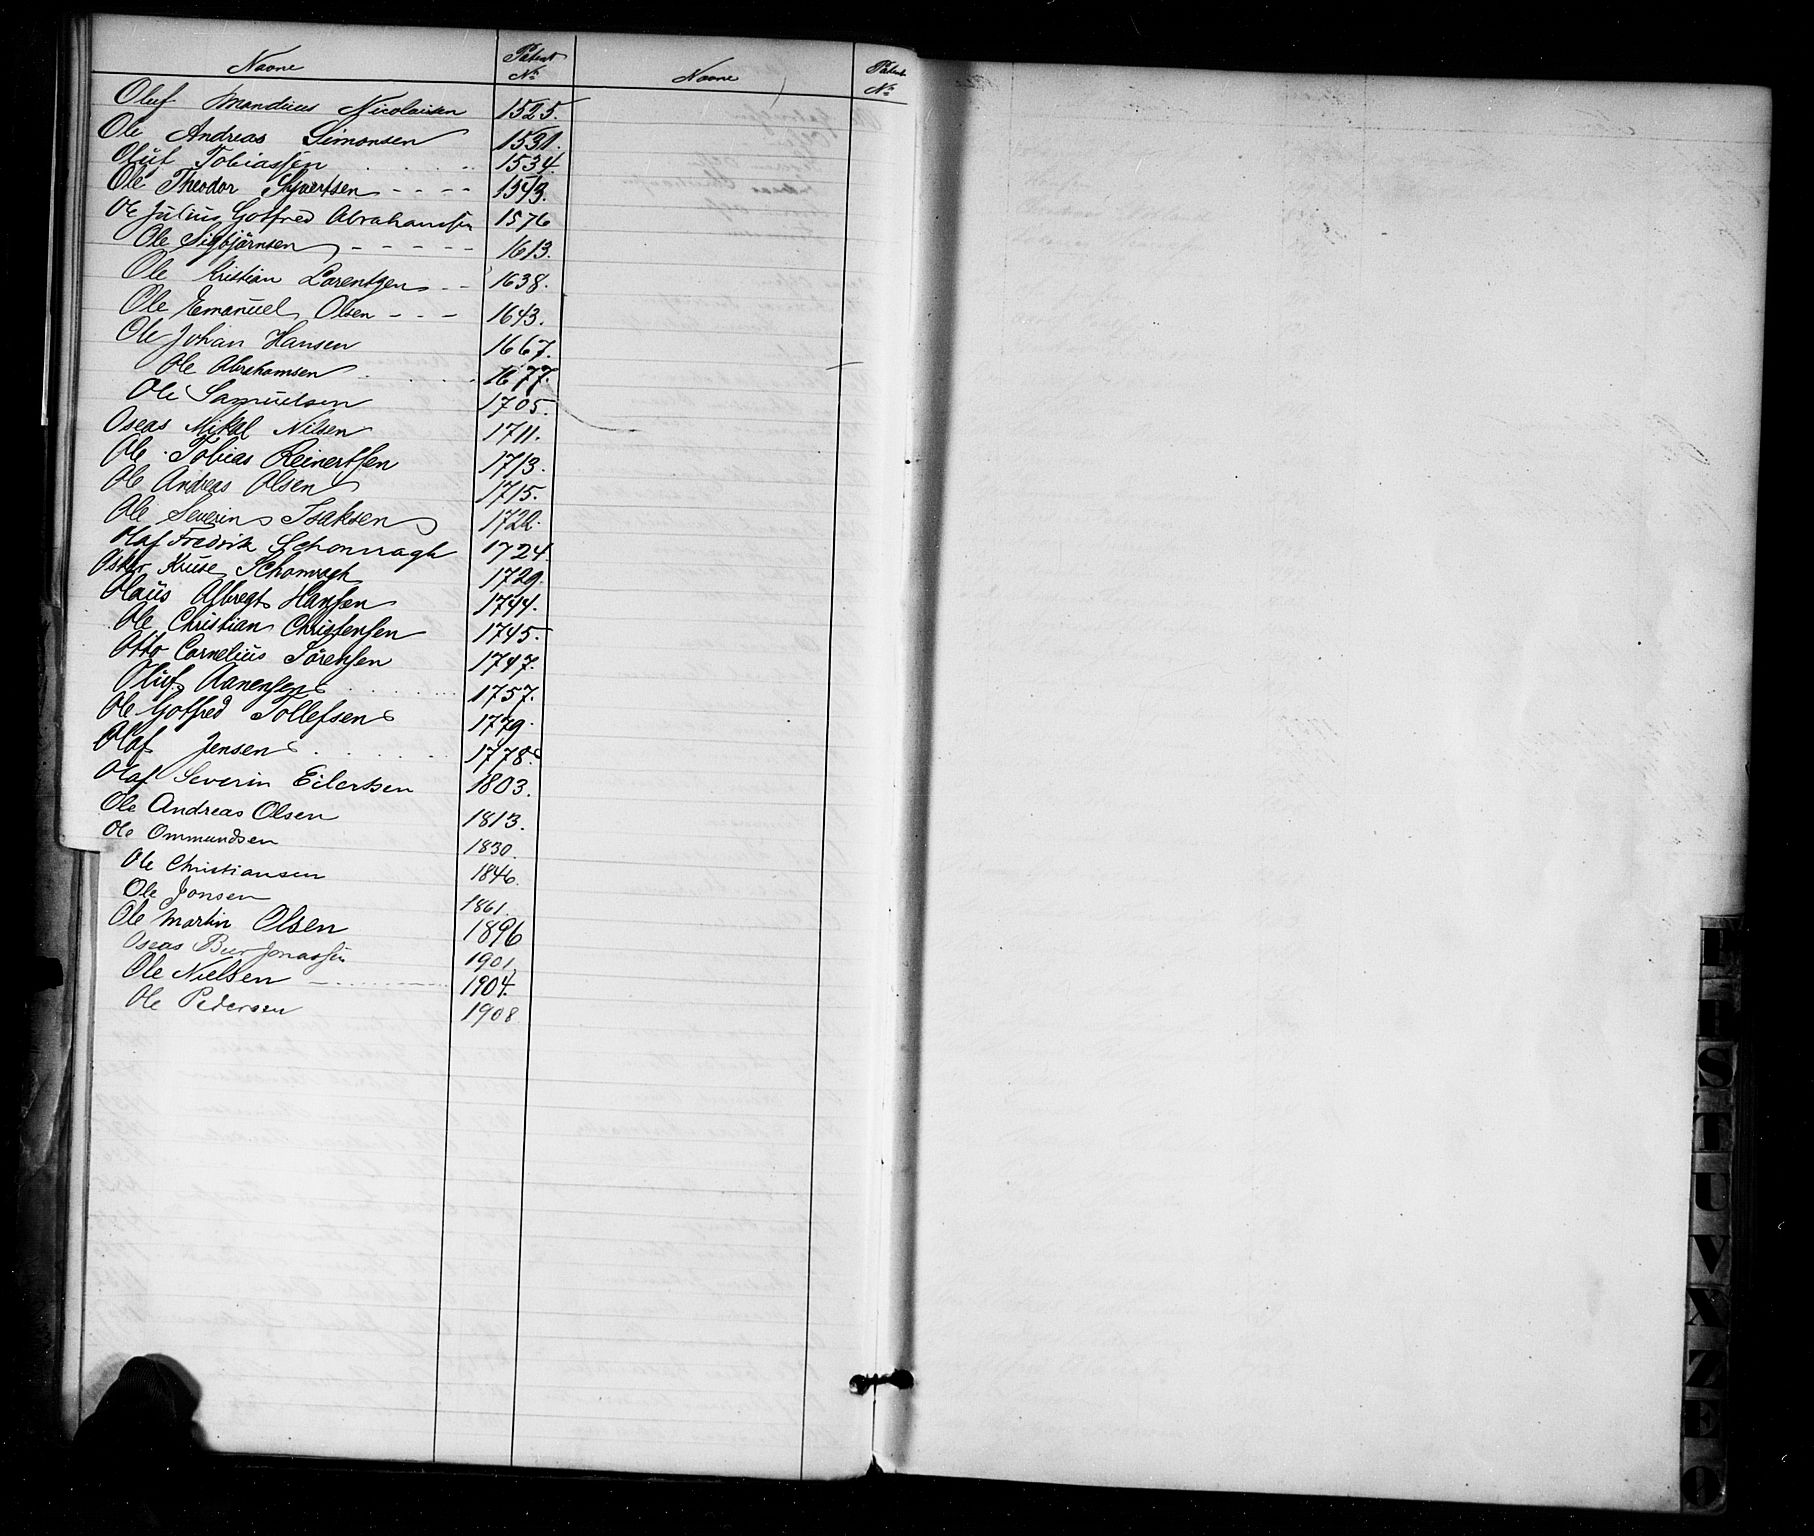 Navne Patent Navne Patent
No No
Oluf Mandius Nicolaisen 1525.
Ole Andreas Simonsen 1531.
Oluf Tobiassen 1534.
Ole Theodor Syvertsen 1543.
Ole Julius Gotfred Abrahamsen 1576
Ole Sigbjörnsen 1613.
Ole Kristian Lorentzen 1638.
Ole Emanuel Olsen 1643.
Ole Johan Hansen 1667.
Ole Abrahamsen 1677.
Ole Samuelsen 1705.
Oseas Mikal Nilsen 1711.
Ole Tobias Reinertsen 1713.
Ole Andreas Olsen 1715.
Ole Severin Isaksen 1722.
Olaf Fredrik Schonvagh 1724.
Oskar Kruse Schonvagh 1729.
Olaüs Albregt Hansen 1744.
Ole Christian Christensen 1745.
Otto Cornelius Sörensen 1747.
Oluf Aanensen 1757.
Ole Gotfred Tollefsen 1779.
Olaf Jensen 1778.
Olaf Severin Eilertsen 1803.
Ole Andreas Olsen 1813.
Ole Ommundsen 1830.
Ole Christiansen 1846.
Ole Jonsen 1861.
Ole Martin Olsen 1896
Oseas Jonassen 1901
Ole Nielsen 1904.
Ole Pedersen 1908
S
T
U
V
X
Z
Æ
Ø